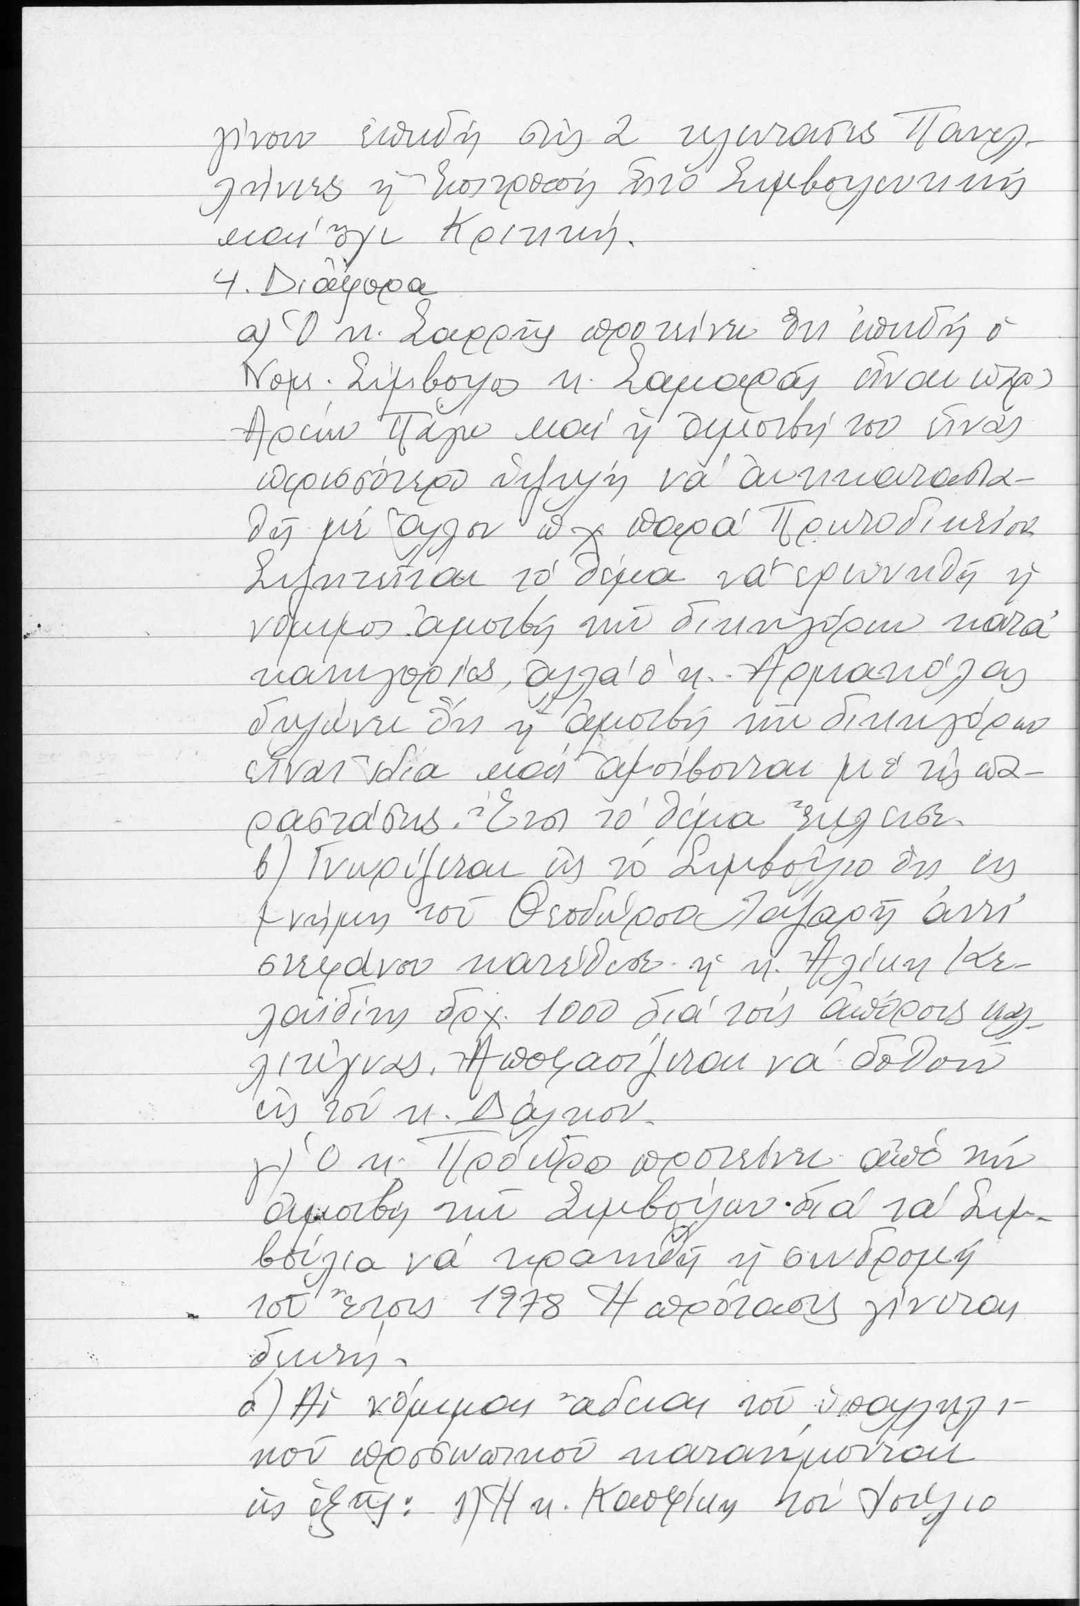 γίνουν ἐπειδή στίς 2 τελευταῖες Πανελ-
λήνιες ἡ Ἐπιτροπή ἦτο Συμβουλευτική
καί ὄχι Κριτική.
4. Διάφορα
α) Ὁ κ. Σαρρῆς προτείνει ὅτι ἐπειδή ὁ
Νομ. Σύμβουλος κ. Σαμαρᾶς εἶναι παρ'
Ἀρείω Πάγω καί ἡ ἀμοιβή του εἶναι
περισσότερο ὑψηλή νά ἀντικαταστα-
θῆ μέ ἄλλον π.χ παρά Πρωτοδικείοις
Συζητεῖται τό θέμα νά ἐρωτηθῆ ἡ
νόμιμος ἀμοιβή τῶν δικηγόρων κατά
κατηγορίας, ἀλλά ὁ κ. Ἀρμακόλας
δηλώνει ὅτι ἡ ἀμοιβή τῶν δικηγόρων
εἶναι ἴδια καί ἀμοίβονται μέ τίς πα-
ραστάσεις. Ἔτσι τό θέμα ἔκλεισε.
β) Γνωρίζεται εἰς τό Συμβούλιο ὅτι εἰς
μνήμη τοῦ Θεοδώρου Λαζαρῆ ἀντί
στεφάνου κατέθεσε ἡ κ. Ἀλίκη Κε-
λαϊδίνη δρχ. 1000 διά τούς ἀπόρους καλ-
λιτέχνας. Ἀποφασίζεται νά δοθοῦν
εἰς τόν κ. Δάλκον.
γ) Ὁ κ. Πρόεδρο προτείνει ἀπό τήν
ἀμοιβή τῶν Συμβούλων διά τά Συμ-
βούλια νά κρατηθῆ ἡ συνδρομή
τοῦ ἔτους 1978 Ἡ πρότασις γίνεται
δεκτή.
δ) Αἱ νόμιμαι ἄδειαι τοῦ ὑπαλληλι-
κοῦ προσωπικοῦ κατανέμονται
εἰς ἑξῆς: 1) Ἡ κ. Καπφίκη τόν Ἰούλιο